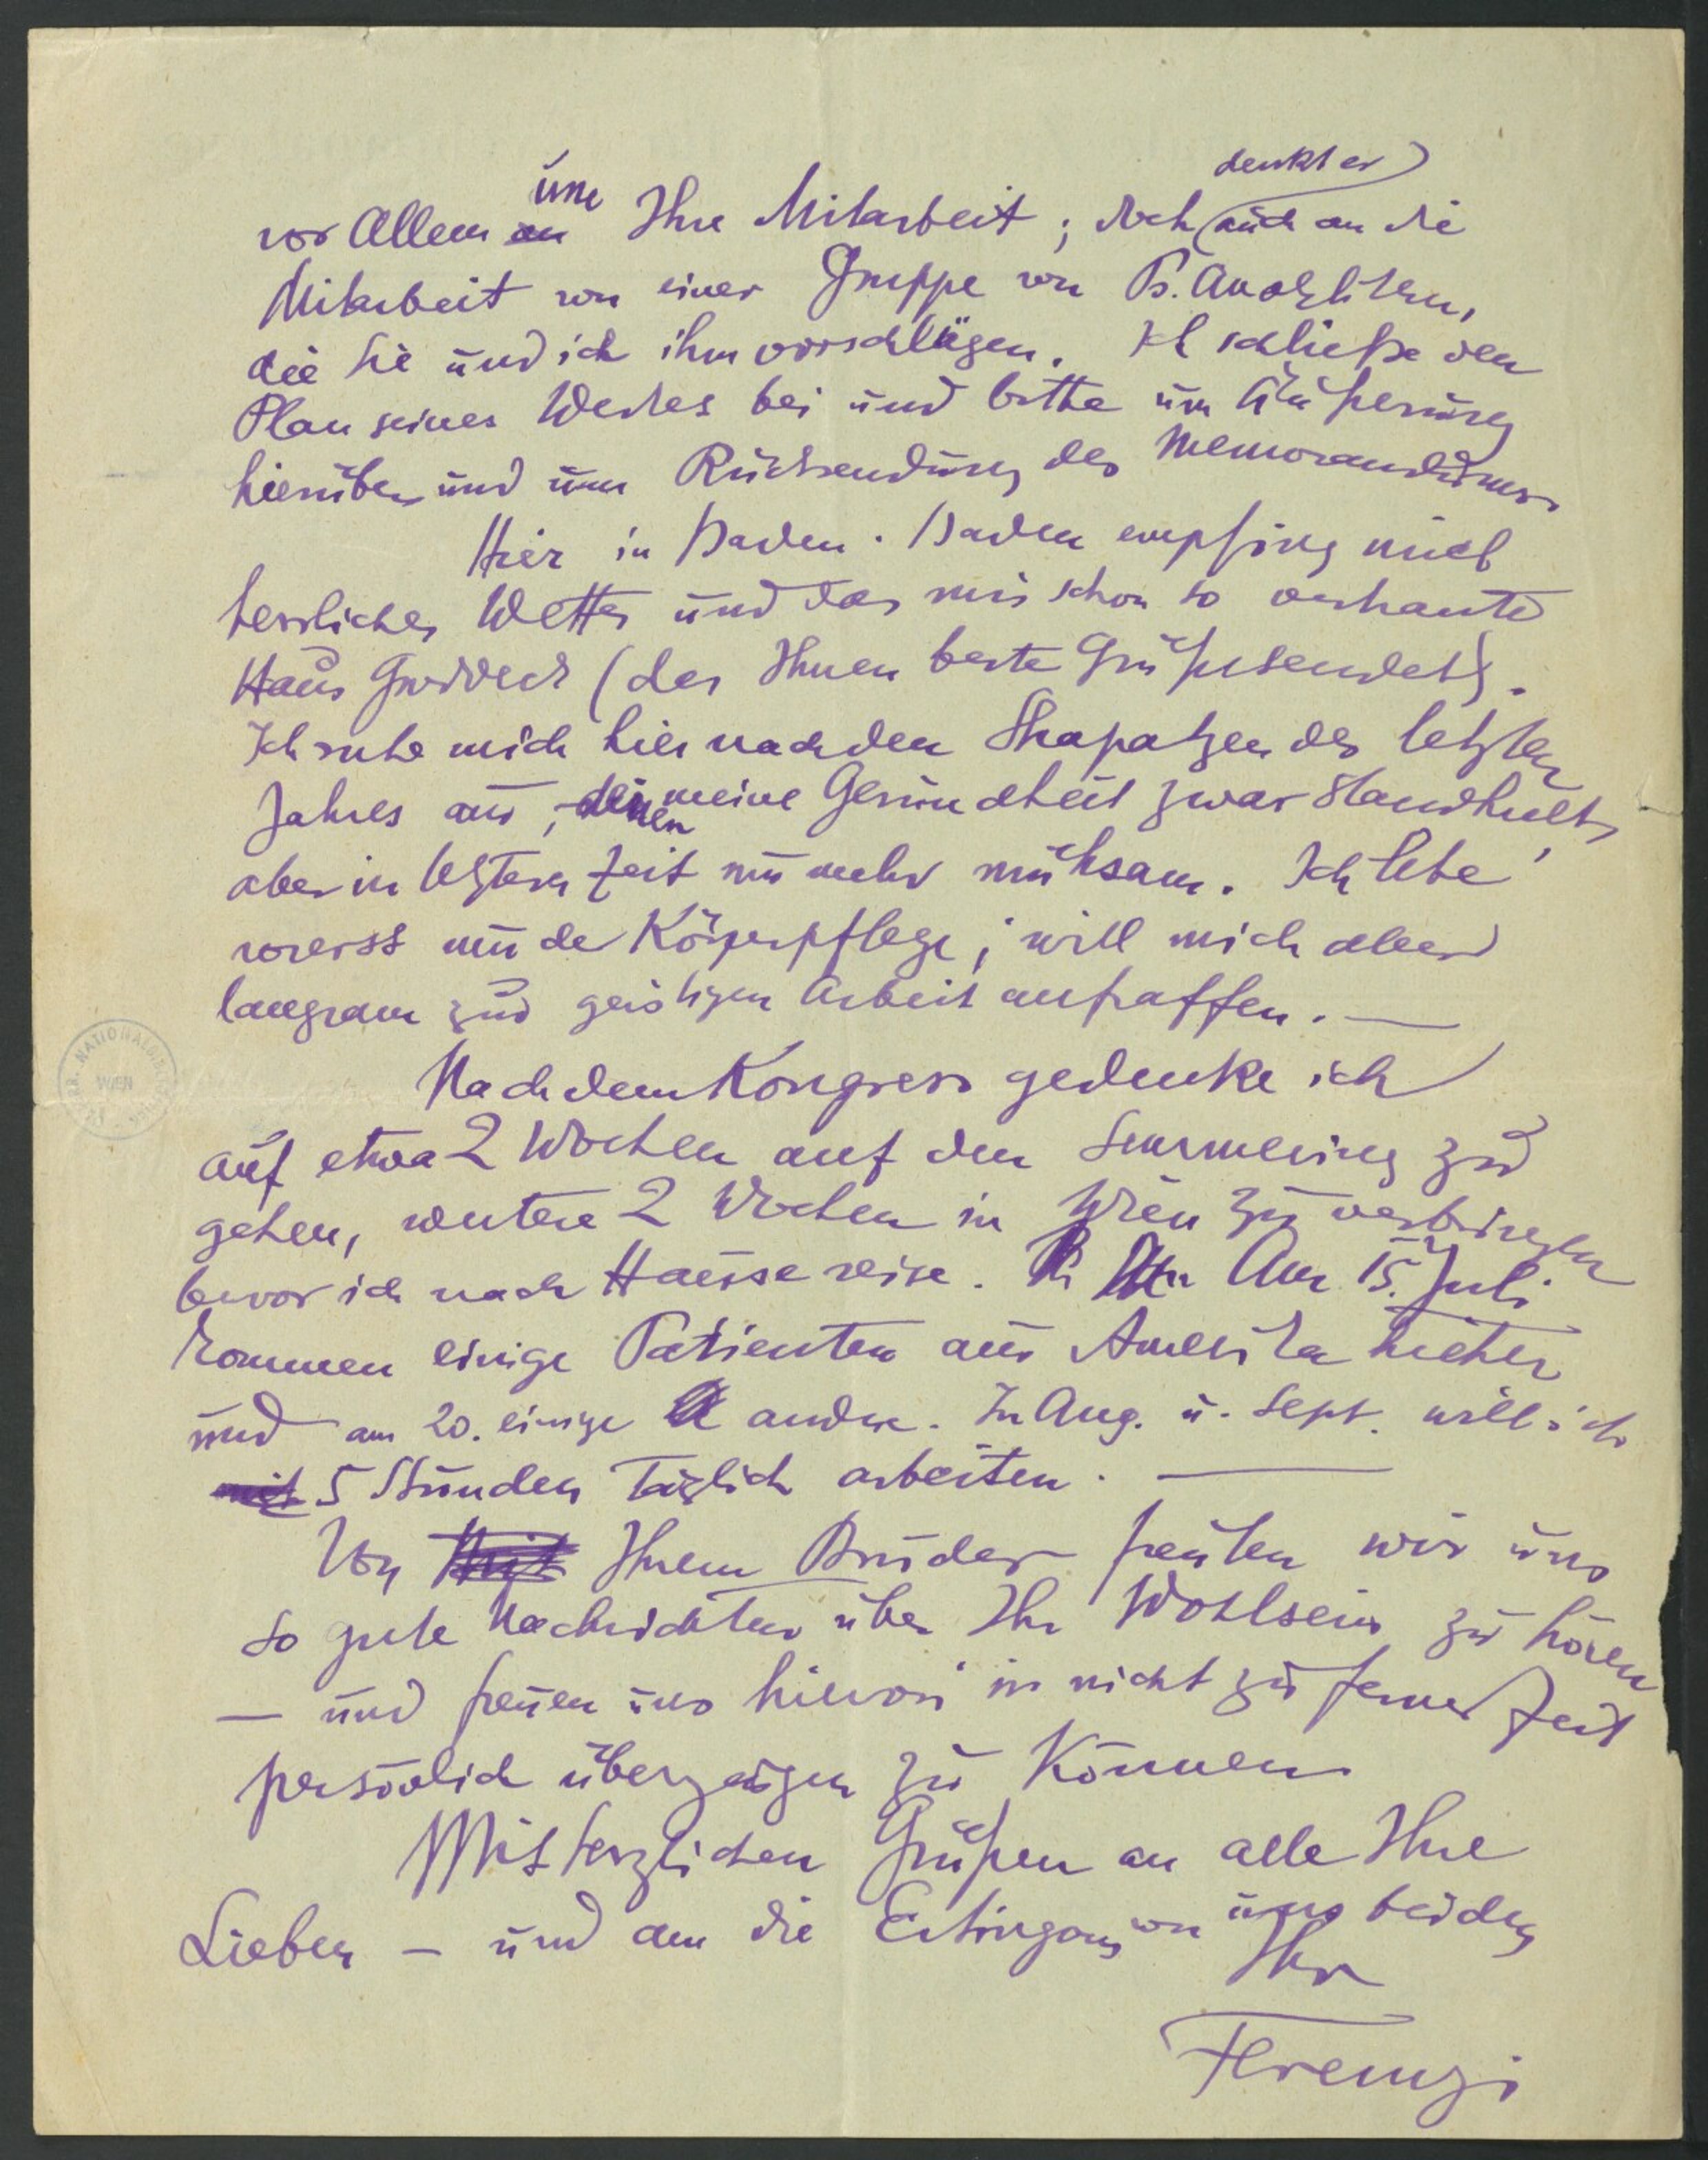 denkt er
vor Allem um Ihre Mitarbeit; doch auch an die
Mitarbeit von einer Gruppe von Ps. Analytikern,
die Sie und ich ihm vorschlügen. Ich schließe den
Plan seines Werkes bei und bitte um Äußerung
hierüber und um Rücksendung des Memorandums.
Hier in Baden-Baden empfing mich
herrliches Wetter und das mir schon so vertraute
Haus Groddeck (der Ihnen beste Grüße sendet).
Ich ruhe mich hier nach den Strapatzen des letzten
Jahres aus, denen meine Gesundheit zwar standhielt,
aber in letzterer Zeit nur mehr mühsam. Ich lebe
vorerst nur der Körperpflege; will mich aber
langsam zur geistigen Arbeit aufraffen. —
Nach dem Kongress gedenke ich
auf etwa 2 Wochen auf den Semmering zu
gehen, weitere 2 Wochen in Wien zu verbringen
bevor ich nach Hause reise. Am 15. Juli
kommen einige Patienten aus Amerika hieher
und am 20. einige andre. In Aug. u. Sept. will ich
5 Stunden täglich arbeiten. —
Von Ihrem Bruder freuten wir uns
so gute Nachrichten über Ihr Wohlsein zu hören
— und freuen uns hievon in nicht zu ferner Zeit
persönlich überzeugen zu können
Mit herzlichen Grüßen an alle Ihre
Lieben — und an die Eitingons von uns beiden
Ihr
Ferenczi
NATIONALBIBLIOTHEK
WIEN